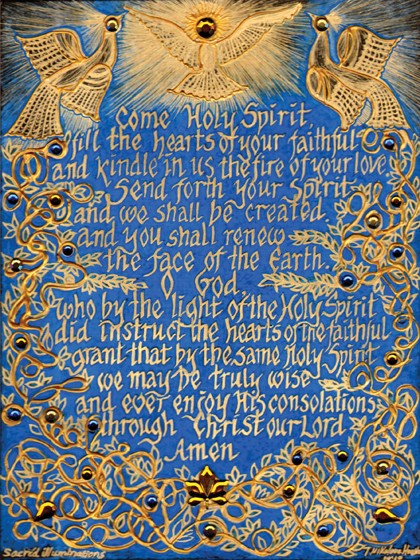 Come Holy Spirit
fill the hearts of your faithful
and kindle in us the fire of your love
Send forth your Spirit
and we shall be created.
and you shall renew
the face of the Earth.
O God
who by the light of the Holy Spirit
did instruct the hearts of the faithful
grant that by the same Holy Spirit
we may be truly wise
and ever enjoy His consolations
through Christ our Lord
Amen
Sacred Illuminations